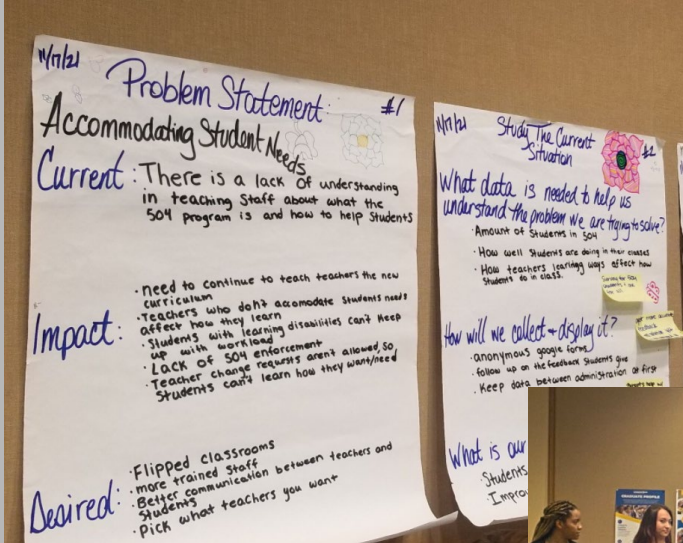 11/17/21
Problem Statement:
#1
Accommodating Student Needs
Current: There is a lack of understanding
in teaching Staff about what the
504 program is and how to help Students
Impact:
· need to continue to teach teachers the new
curriculum
· Teachers who don't accomodate Students needs
affect how they learn
· Students with learning disabilities can't keep
up with workload
· Lack of 504 enforcement
· Teacher change requests aren't allowed, so
Students can't learn how they want/need
Desired:
· Flipped classrooms
· more trained Staff
· Better communication between teachers and
Students
· Pick what teachers you want
11/17/21
Study The Current
Situation
#2
What data is needed to help us
understand the problem we are trying to solve?
· Amount of Students in 504
· How well Students are doing in their classes
· How teachers learning ways affect how
Students do in class.
How will we collect & display it?
· anonymous google forms
· follow up on the feedback Students give
· Keep data between administration at first
What is our
· Students
· Improv
GRADUATE PROFILE